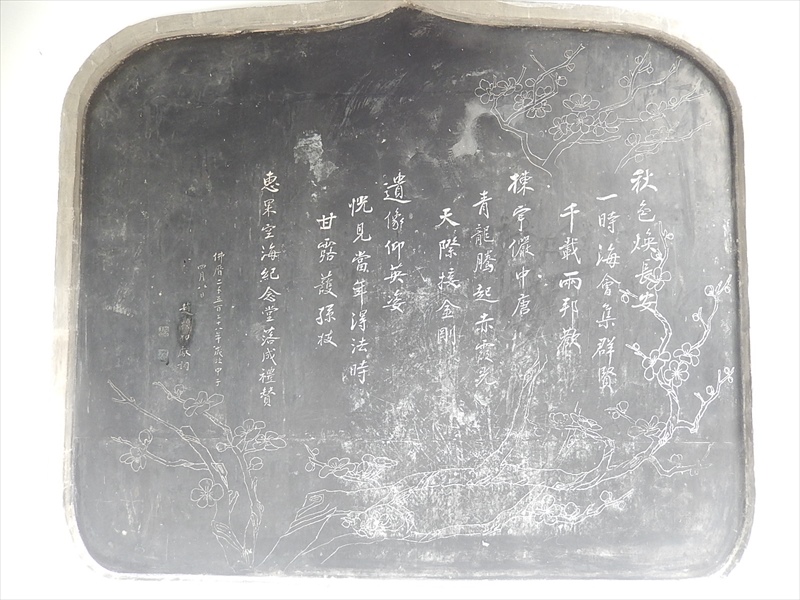 秋色煥長安
一時海會集群賢
千載兩邦歡
棟宇儼中唐
青龍騰起赤霞光
天際接金剛
遺像仰英姿
恍見當年得法時
甘露護孫枝
惠果空海紀念堂落成禮贊
佛曆二千五百二十八年歲次甲子
四月八日
趙樸初敬初